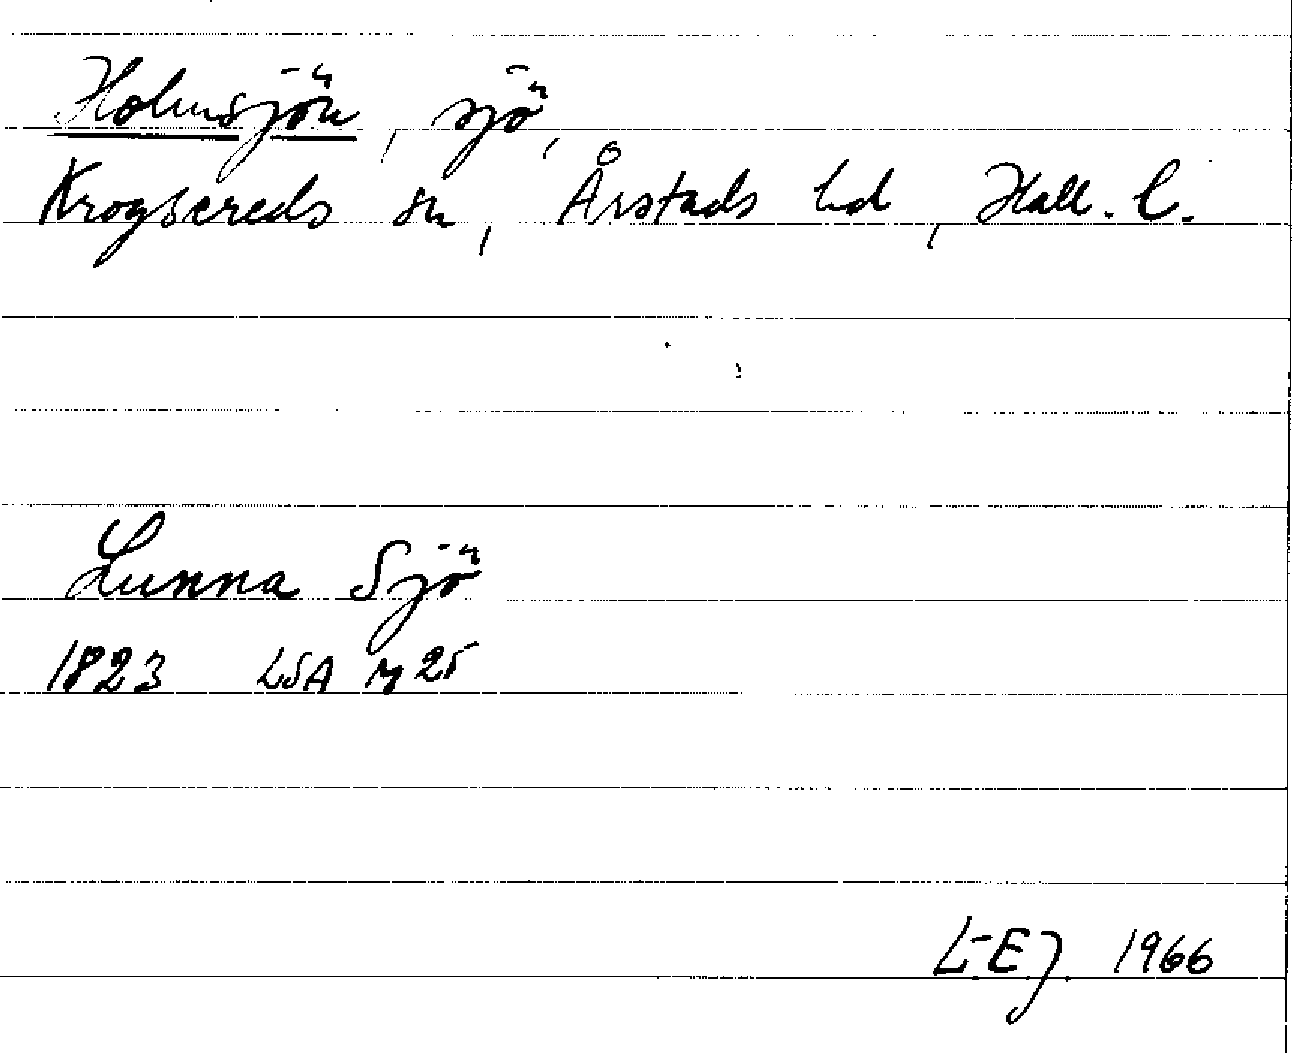 Holmsjön, sjö,
Krogsereds sn, Årstads hd, Hall. l.
Lunna Sjö
1823 LSA M 25
L-EJ. 1966